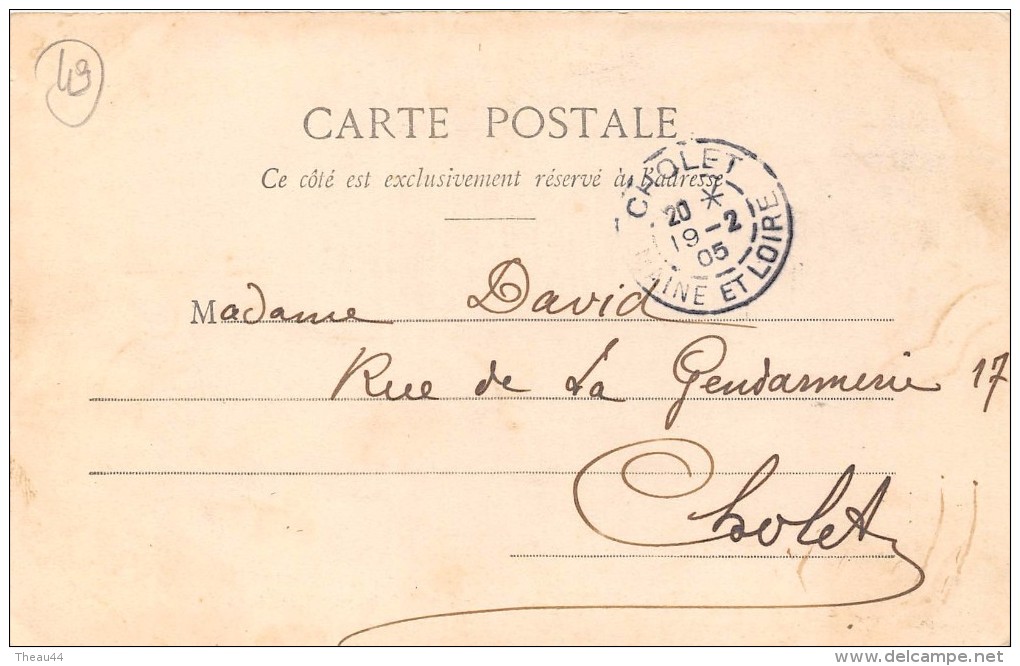 49
CARTE POSTALE
Ce côté est exclusivement réservé à l'adresse
CHOLET
20 *
19-2
05
MAINE ET LOIRE
Madame David
Rue de La Gendarmerie 17
Cholet
Theau44
www.delcampe.net